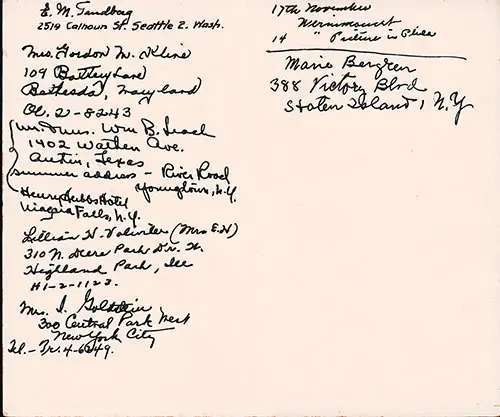 E. M. Tandberg
2519 Calhoun St. Seattle 2. Wash.
Mrs. Gordon M. Kline
109 Battery Lane
Bethesda, Maryland
Ol. 2-8243
Mr. & Mrs. Wm B. Leach
1402 Wathen Ave.
Austin, Texas
summer address - River Road
Youngstown, N.Y.
Henry Hubbs Hotel
Niagara Falls, N.Y.
Lillian H. (Mrs E.H)
310 N. Deere Park Dr. W.
Highland Park, Ill
HI-2-1123.
Mrs. I. Goldstein
300 Central Park West
New York City
Tel.- Tr. 4-6249.
17th November
14 " Picture in
Marie Bergren
388 Victory Blvd
Staten Island 1 N.Y